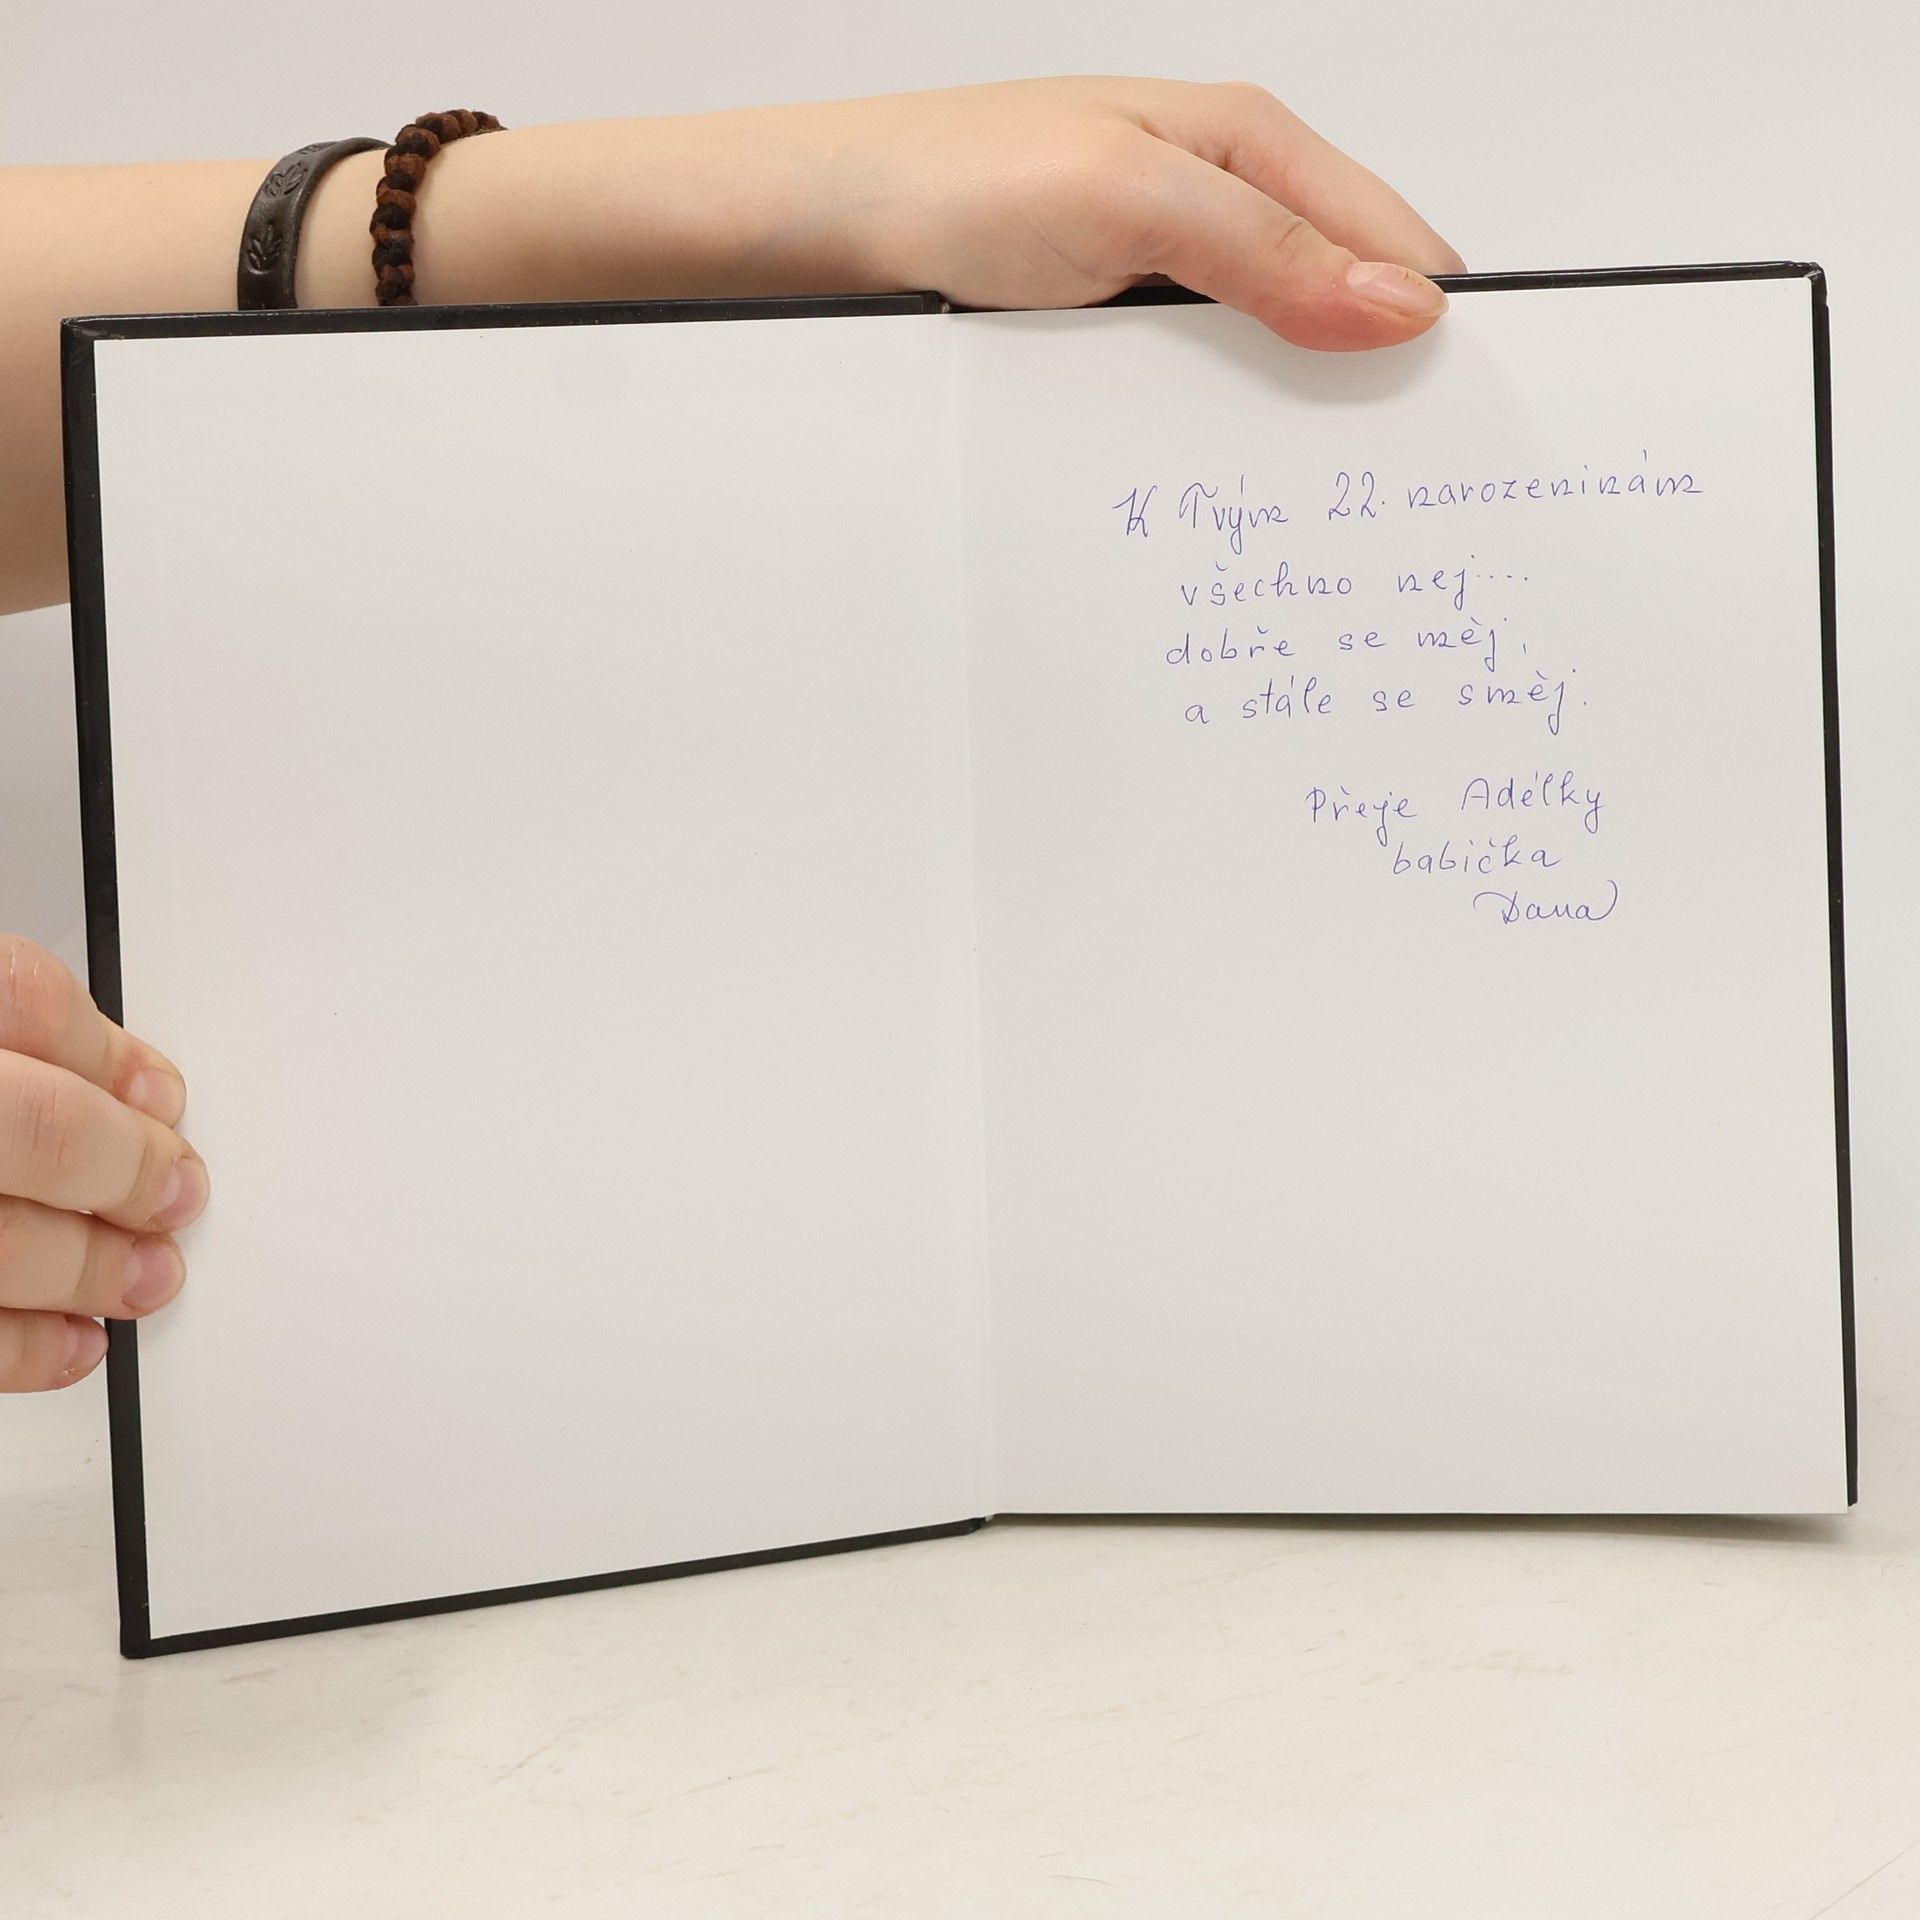 K Tvým 22. narozeninám
všechno nej....
dobře se měj,
a stále se směj.
Přeje Adélky
babička
Dana